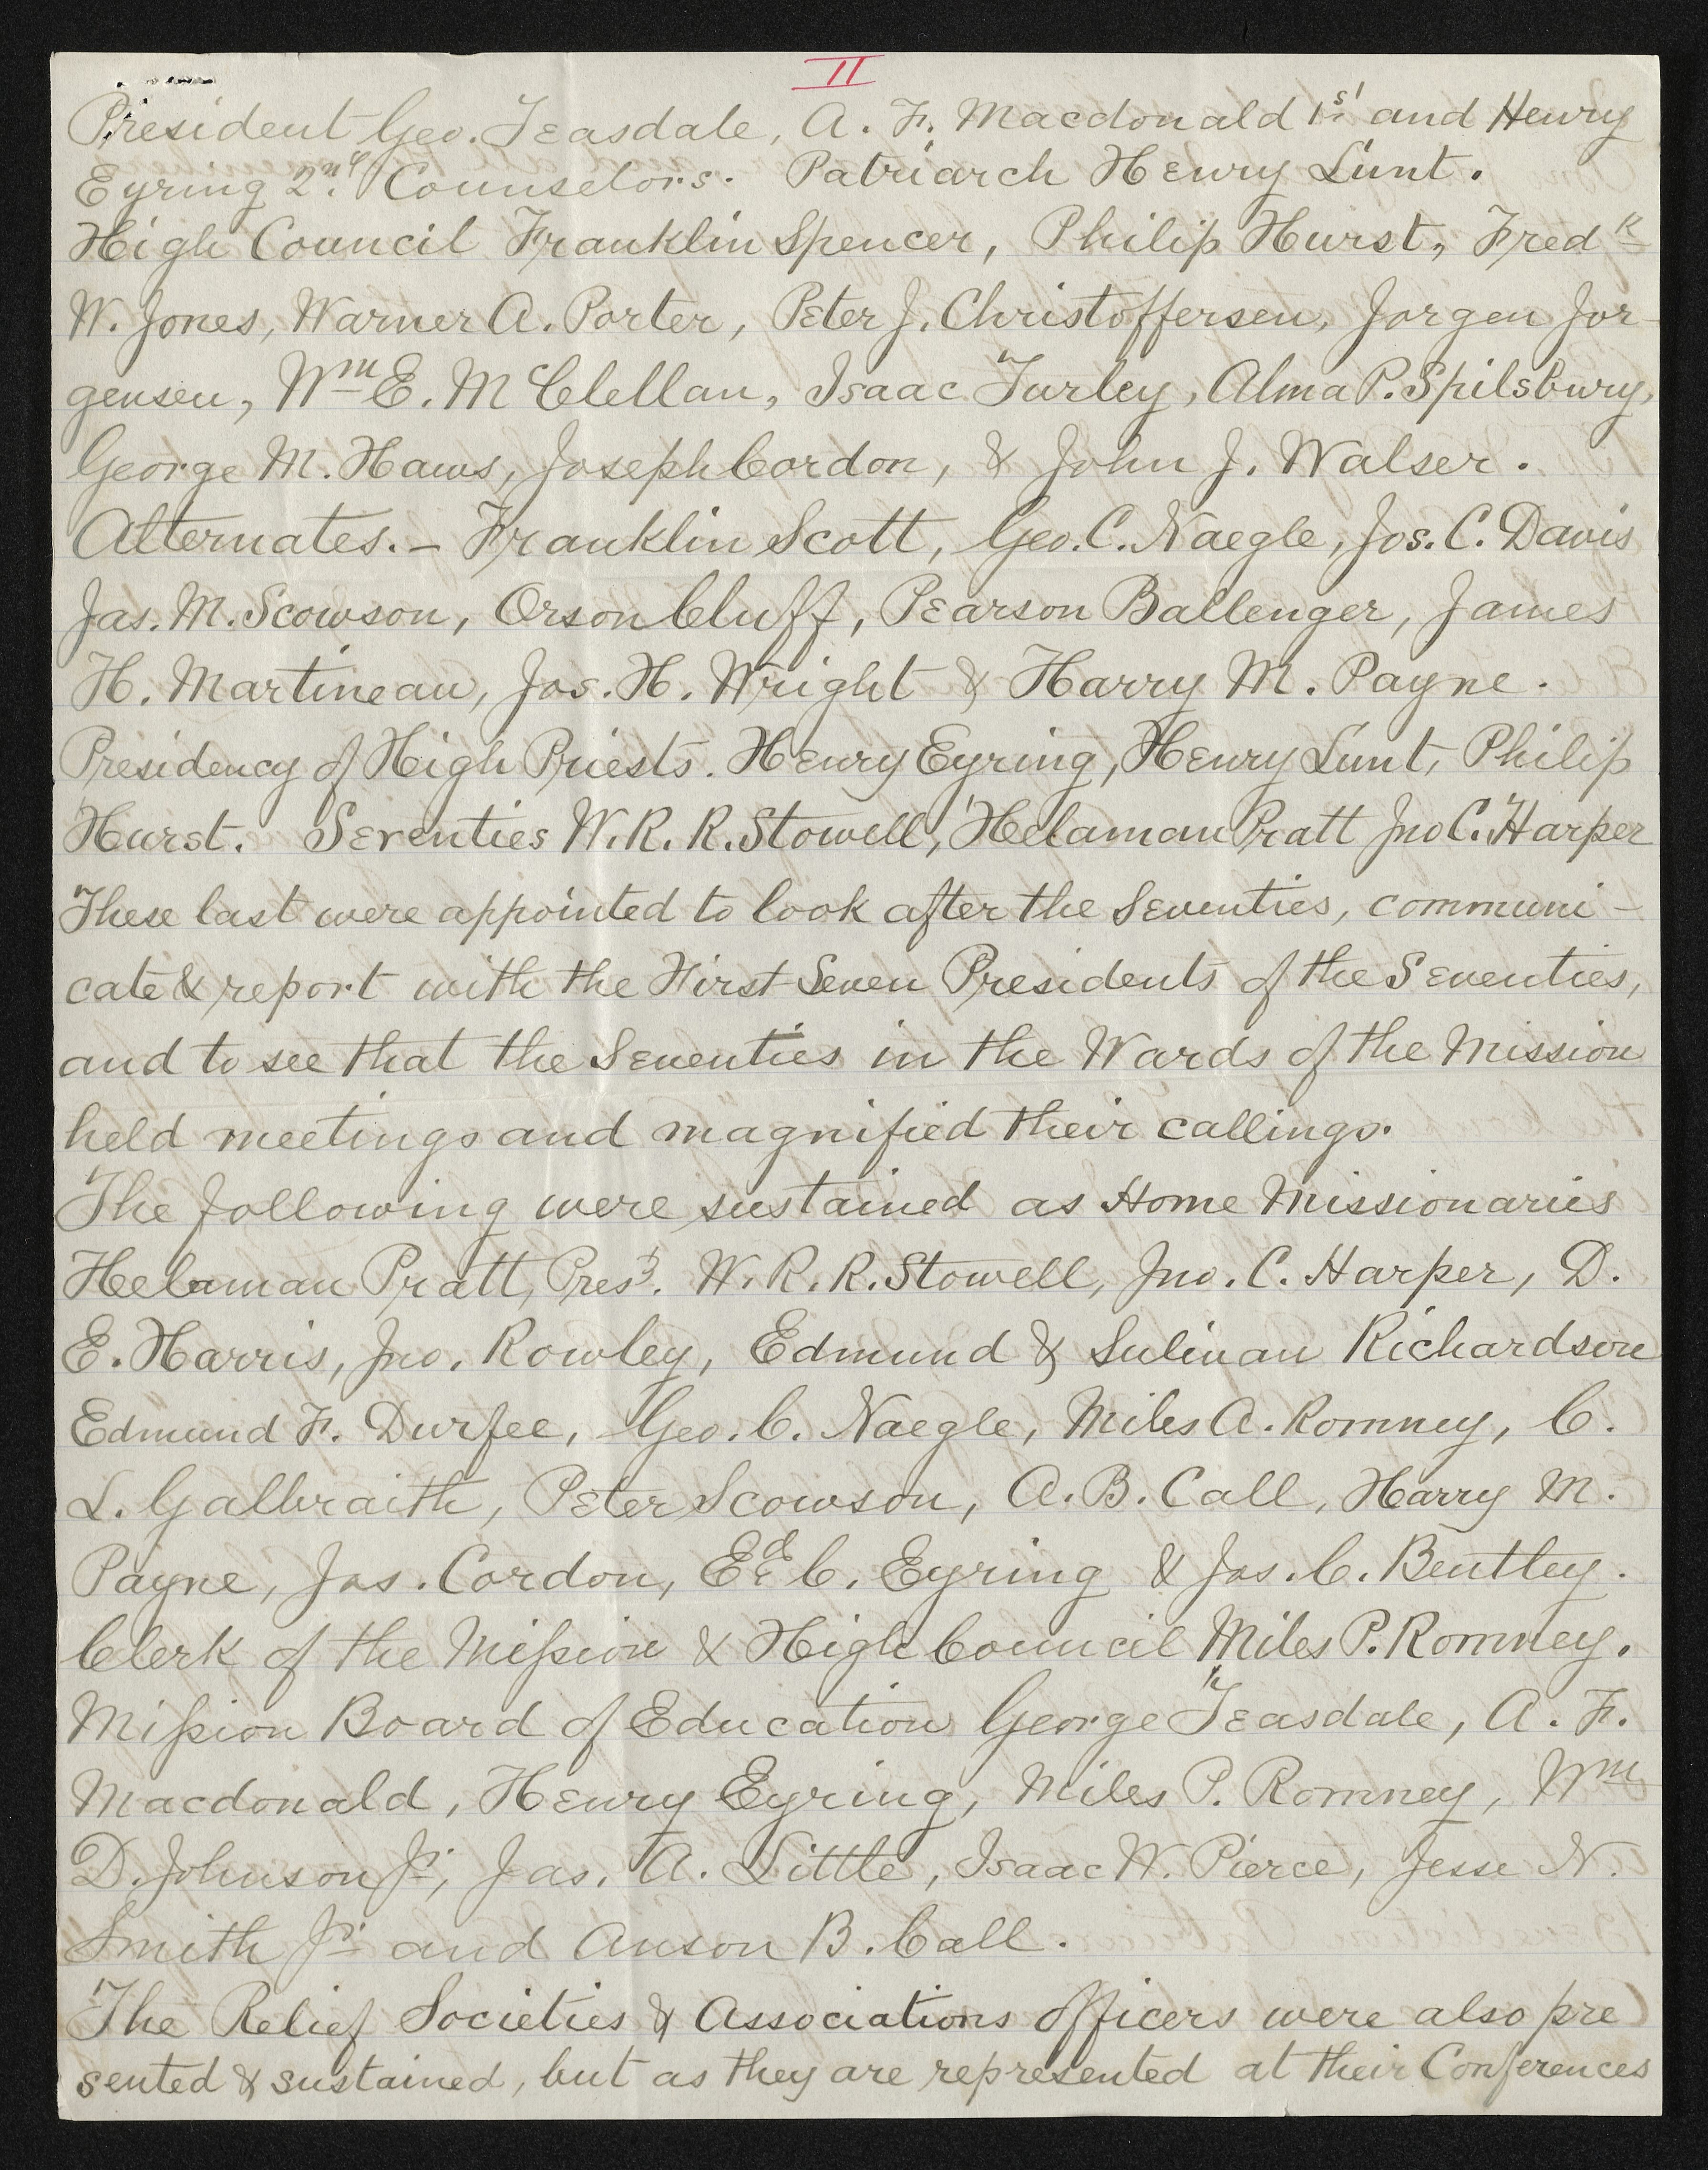 II
President Geo. Teasdale, A. F. Macdonald 1st and Henry
Eyring 2nd Counselors. Patriarch Henry Lunt.
High Council Franklin Spencer, Philip Hurst, Fredk
W. Jones, Warner A. Porter, Peter J. Christoffersen, Jorgen Jor-
gensen, Wm E. McClellan, Isaac Turley, Alma P. Spilsbury,
George M. Haws, Joseph Cordon, & John J. Walser.
Alternates.- Franklin Scott, Geo. C. Naegle, Jos. C. Davis
Jas. M. Scowson, Orson Cluff, Pearson Ballenger, James
H. Martineau, Jos. H. Wright & Harry M. Payne.
Presidency of High Priests. Henry Eyring, Henry Lunt, Philip
Hurst. Seventies W. R. R. Stowell, Helaman Pratt Jno C. Harper
These last were appointed to look after the Seventies, communi-
cate & report with the First Seven Presidents of the Seventies,
and to see that the Seventies in the Wards of the Mission
held meetings and magnified their callings.
The following were sustained as Home Missionaries
Helaman Pratt, Prest. W. R. R. Stowell, Jno. C. Harper, D.
E. Harris, Jno. Rowley, Edmund & Sulivan Richardson
Edmund F. Durfee, Geo. C. Naegle, Miles A. Romney, C.
L. Galbraith, Peter Scowson, A. B. Call, Harry M.
Payne, Jos. Cordon, Ed C. Eyring & Jos. C. Bentley.
Clerk of the Mission & High Council Miles P. Romney.
Mission Board of Education George Teasdale, A. F.
Macdonald, Henry Eyring, Miles P. Romney, Wm
D. Johnson Jr, Jas. A. Little, Isaac W. Pierce, Jesse N.
Smith Jr and Anson B. Call.
The Relief Societies & Associations officers were also pre
sented & sustained, but as they are represented at their Conferences